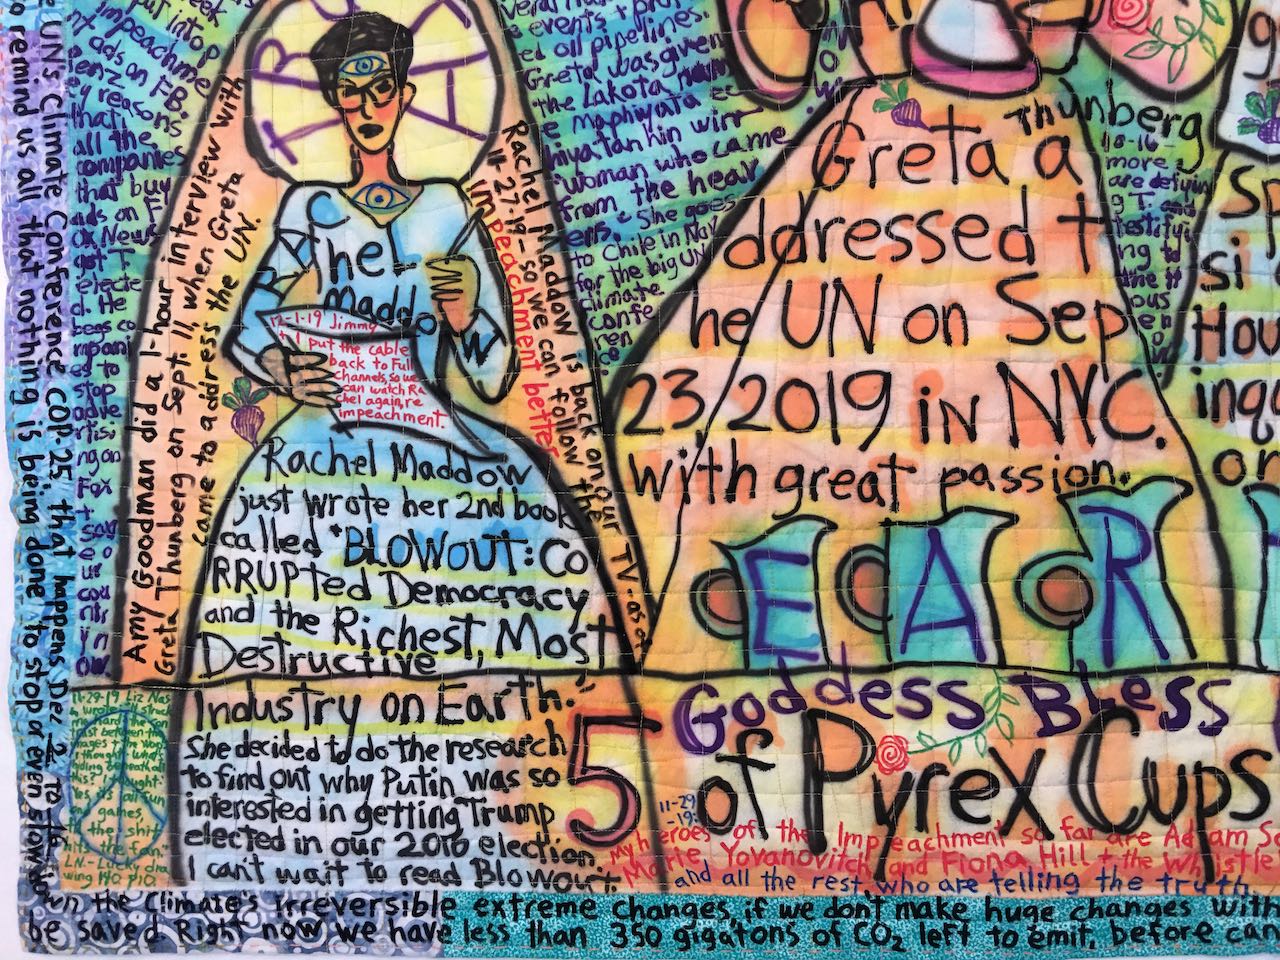 TR
Rachel Maddow
12-1-19 Jimmy
+ I put the cable
back to Full
channels, so we
can watch Ra
chel again, re
impeachment.
Rachel Maddow
just wrote her 2nd book
called "BLOWOUT: CO
RRUPTed Democracy
and the Richest, Most
Destructive
Industry on Earth.
She decided to do the research
to find out why Putin was so
interested in getting Trump
elected in our 2016 election.
I can't wait to read Blowout.
Amy Goodman did a 1-hour interview with
Greta Thunberg on Sept. 11, when Greta
came to address the UN.
Rachel Maddow is back on our TV-as of
11-27-19-so we can follow the
impeachment better
UN's Climate Conference COP-25, that happens Dec 2 to
to remind us all that nothing is being done to stop or even slow
impeachme
ads on FB.
reasons.
that
all the
companies
that buy
ads on F
ox News
got T
electe
d. He
begs co
mpani
es to
stop
adve
rtisi
ng on
Fox
events +
ed all pipelines.
Greta was given
the Lakota nam
e maphiyata
hiyatan hin wi
woman who came
from the heav
ens." She goes
to Chile in Nov
for the big UN
climate
confe
ren
ce.
Thunberg
Greta a
ddressed t
he UN on Sep
23, 2019 in NYC.
with great passion.
10-16-
more
are defying
T. and
testify
ing to
the
ous
EAR
Goddess Bless
5 of Pyrex Cups
11-29
-19:
My heroes of the Impeachment so far are Adam Sc
Marie Yovanovitch and Fiona Hill + the Whistle
and all the rest who are telling the truth.
11-29-19 Liz
the shit
hits the fan.
L.N.-Luck dra
wing 140 p10
the Climate's irreversible extreme changes, if we don't make huge changes with
be saved. Right now we have less than 350 gigatons of CO2 left to emit, before can
sp
si
Hou
inqu
on